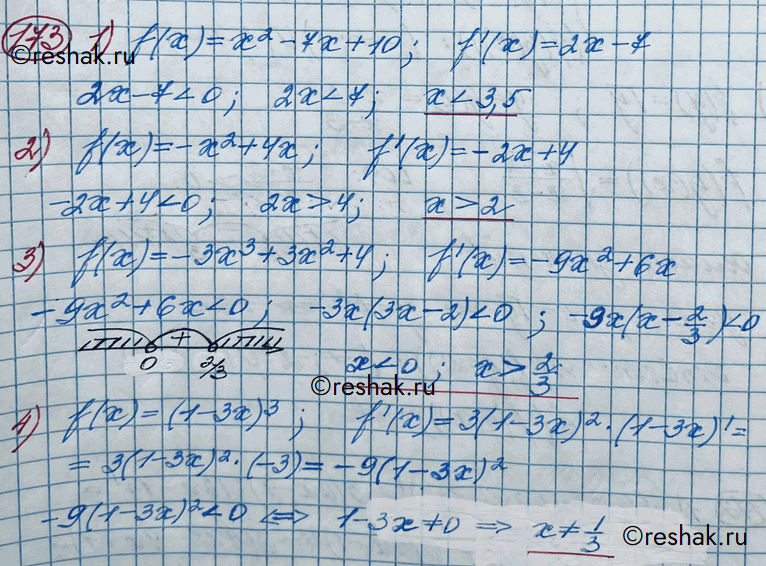 173 1) f(x)=x²-7x+10; f'(x)=2x-7
©reshak.ru
2x-7<0; 2x<7; x<3,5
2) f(x)=-x²+4x; f'(x)=-2x+4
-2x+4<0; 2x>4; x>2
3) f(x)=-3x³+3x²+4; f'(x)=-9x²+6x
-9x²+6x<0; -3x(3x-2)<0; -9x(x-2/3)<0
+
0 2/3 x<0; x>2/3
©reshak.ru
4) f(x)=(1-3x)³; f'(x)=3(1-3x)²·(1-3x)'=
=3(1-3x)²·(-3)=-9(1-3x)²
-9(1-3x)²<0 ⟺ 1-3x≠0 ⇒ x≠1/3
©reshak.ru